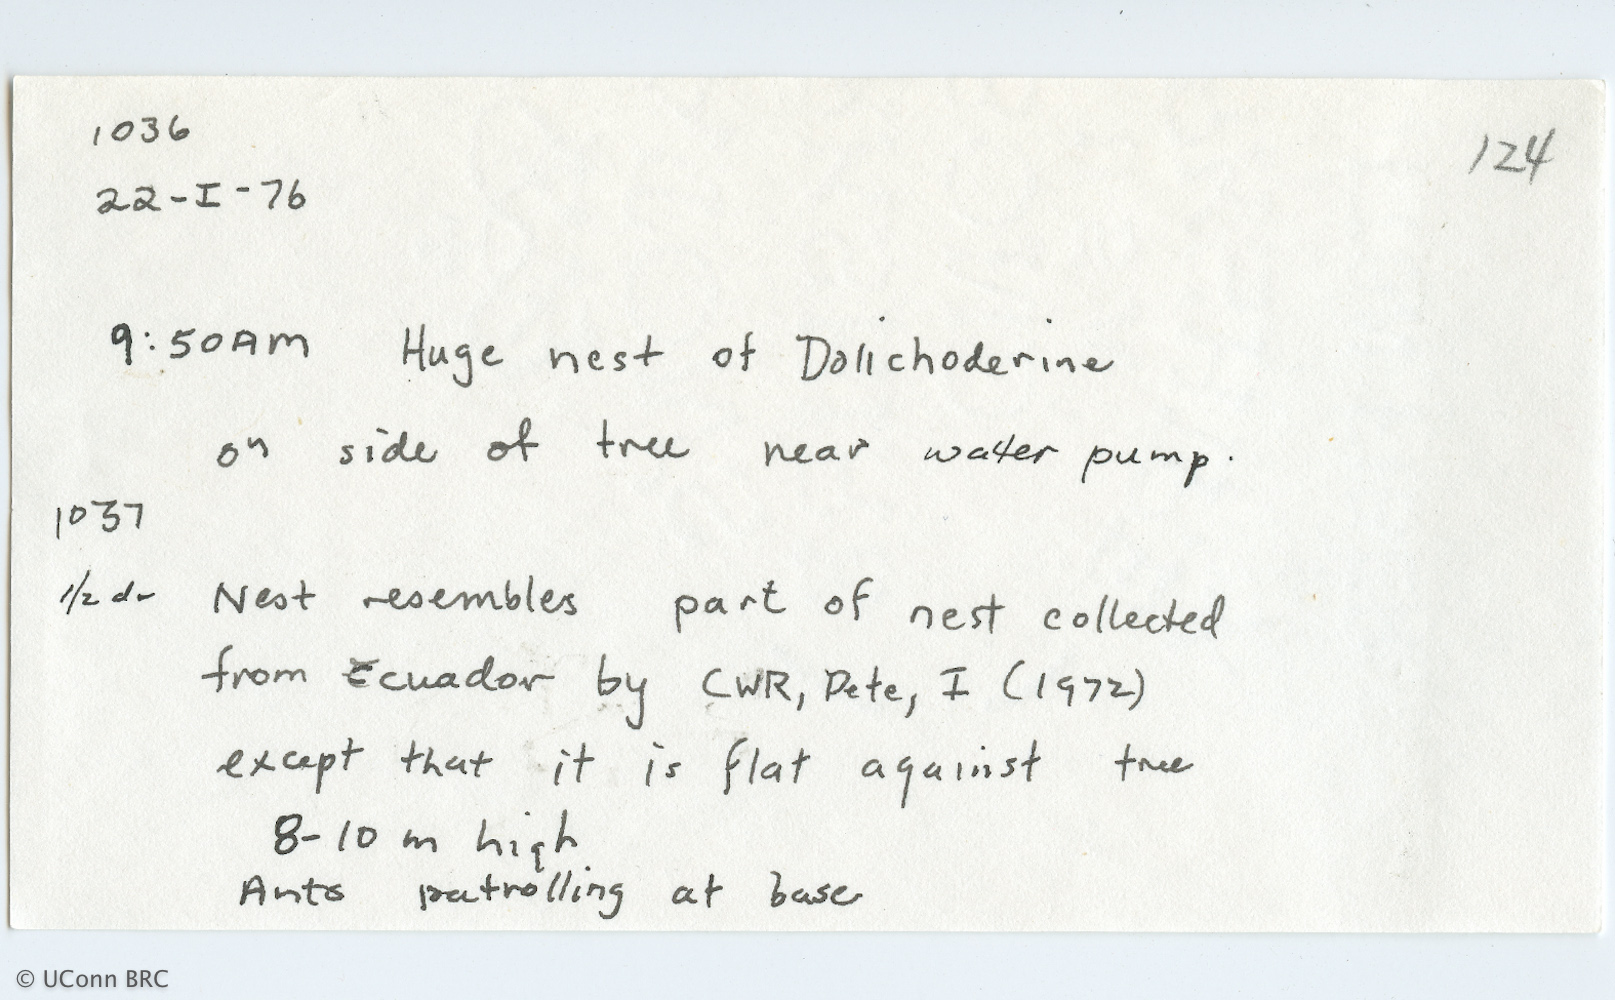 1036
124
22-I-76
9:50AM Huge nest of Dolichoderine
on side of tree near water pump.
1037
1/2 dr Nest resembles part of nest collected
from Ecuador by CWR, Pete, I (1972)
except that it is flat against tree
8-10 m high
Ants patrolling at base
© UConn BRC